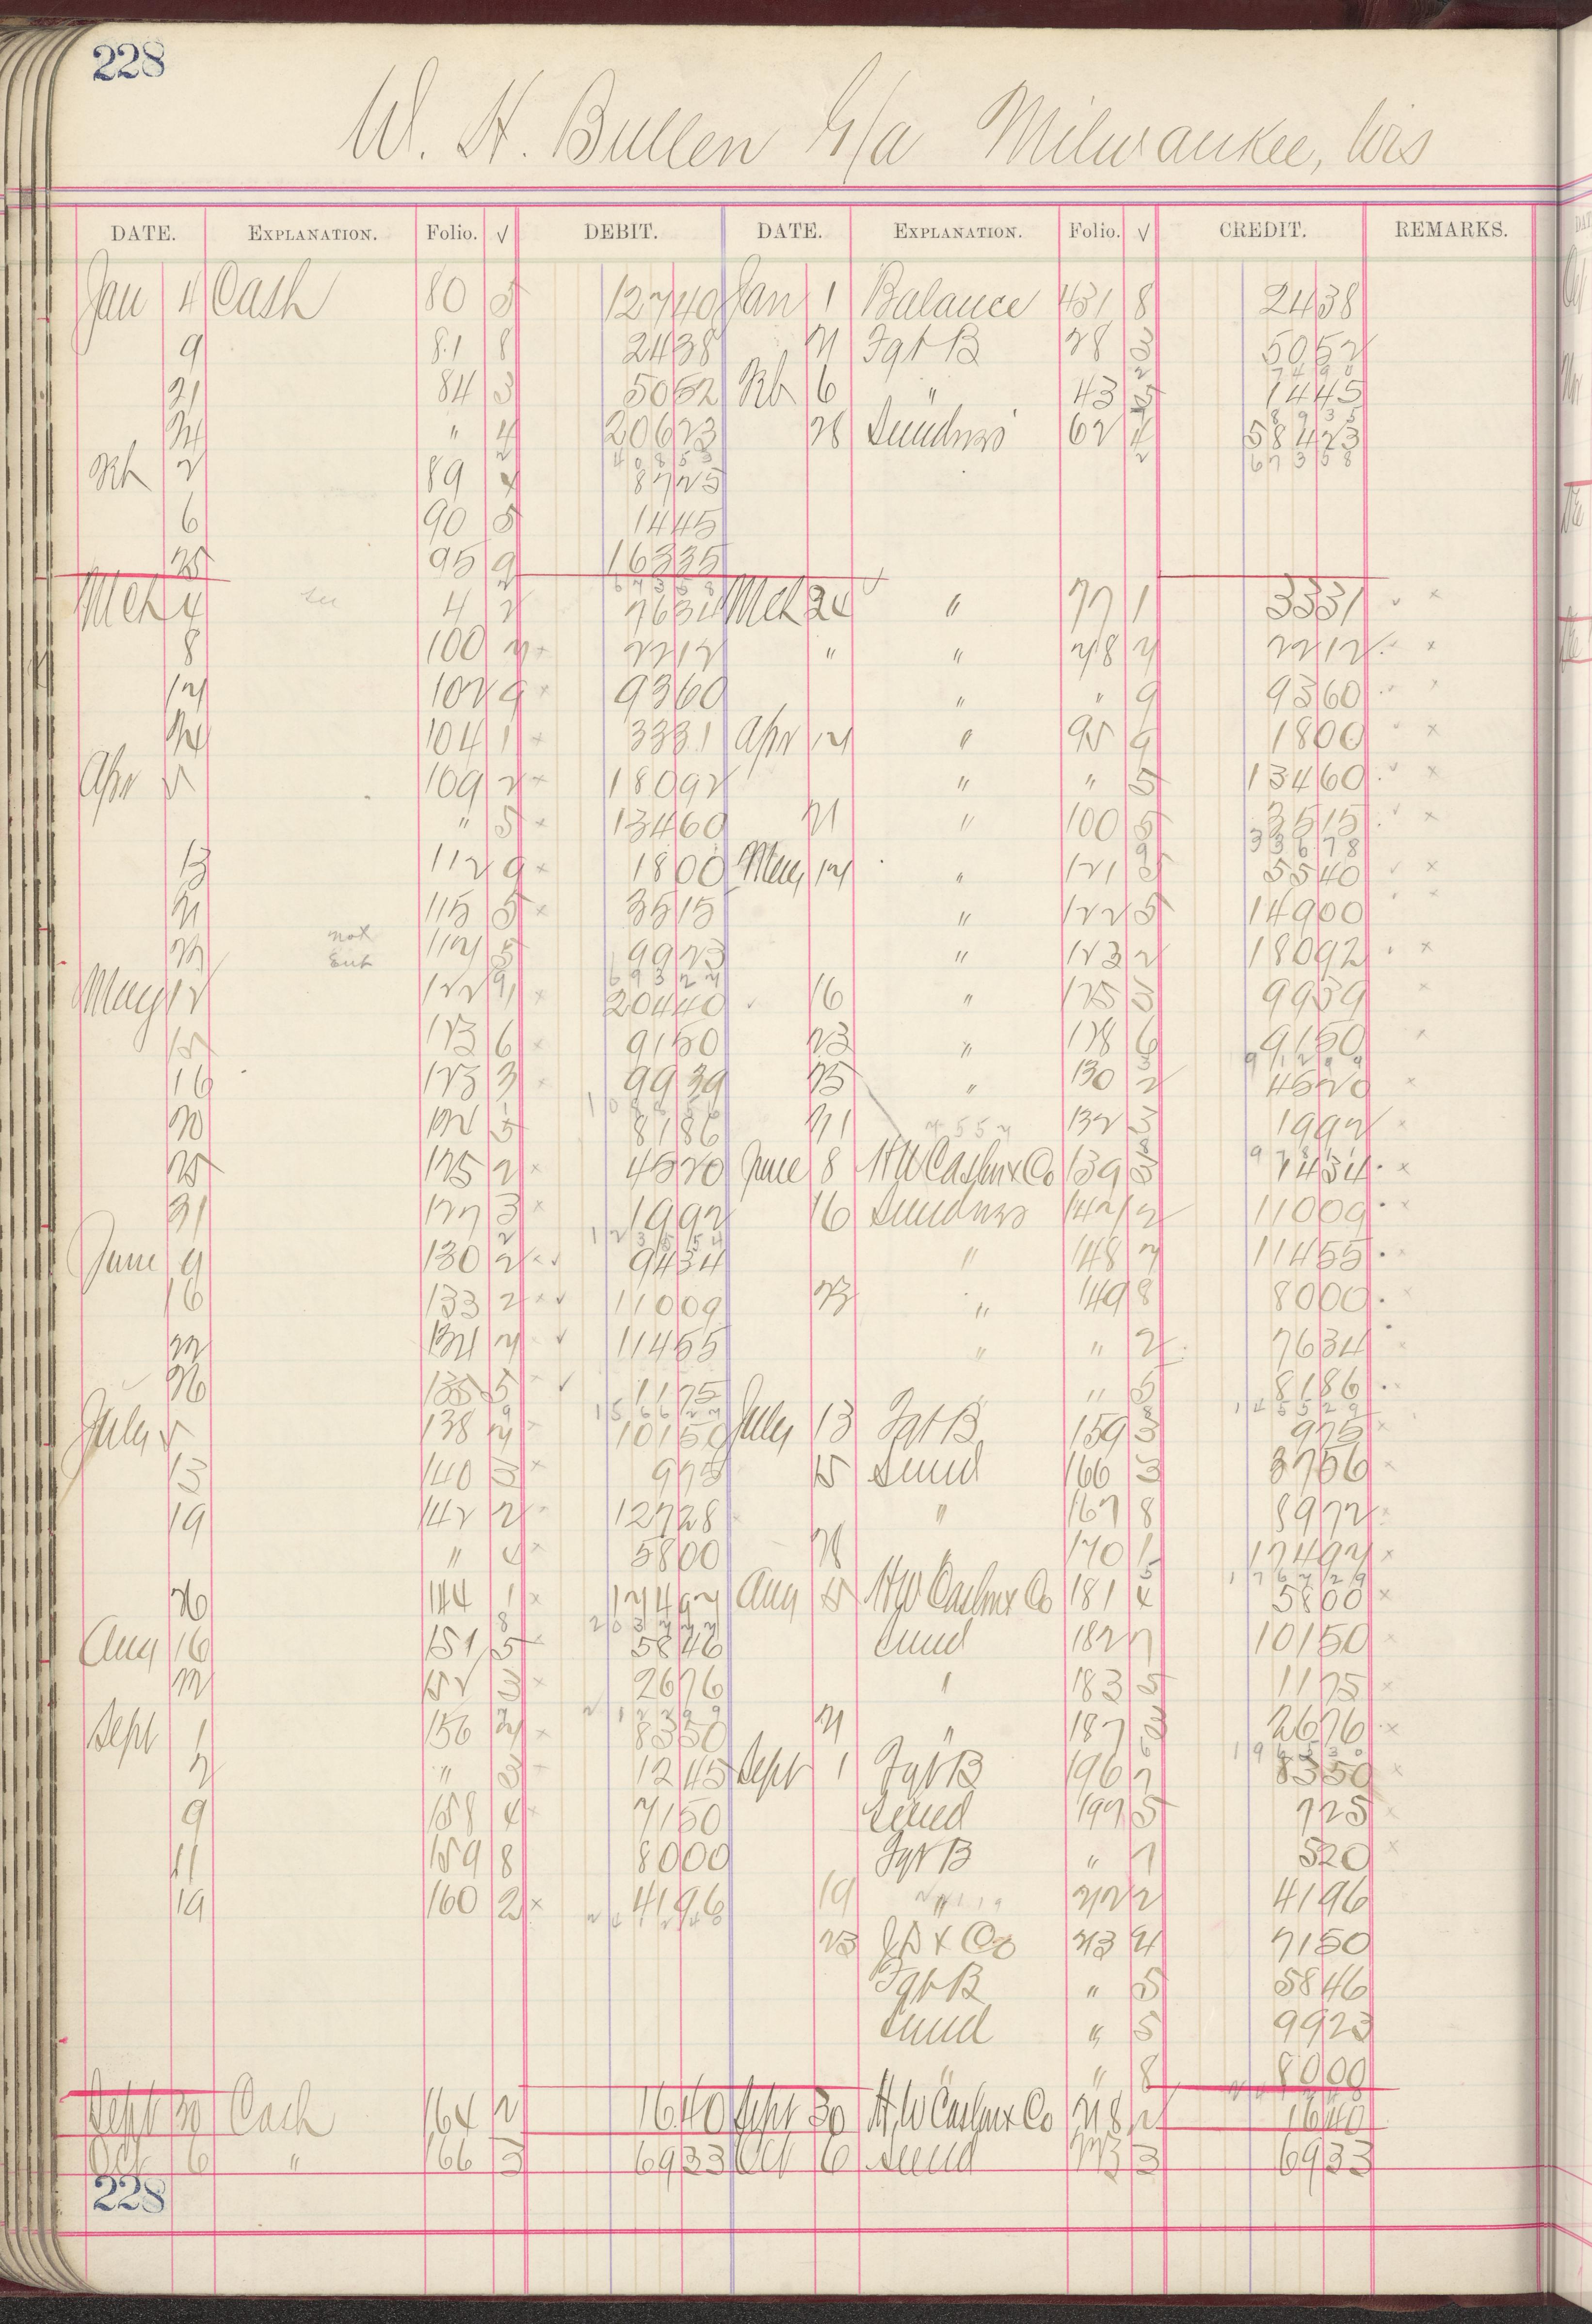 228
W. H. Bullen G/a Milwaukee, Wis
DATE. EXPLANATION. Folio. √ DEBIT. DATE. EXPLANATION. Folio. √ CREDIT. REMARKS.
Jan 4 Cash 80 5 12740 Jan 1 Balance 431 8 2438
9 81 8 2438 21 Fgt B 28 3 5052
21 84 3 5052 Feb 6 " 43 5 1445
24 " 4 20623 28 Sundries 62 58423
40853 67358
Feb 2 89 8725
6 90 5 1445
25 95 9 16335
67358
Mch 4 4 2 7634 Mch 24 " 77 1 3331
8 100 7 2212 " " 78 7 2212
12 102 9 9360 " " 9 9360
24 104 1 3331 Apr 12 " 95 9 1800
Apr 5 109 2 18092 " " 5 13460
" 5 13460 21 " 100 5 3515
33678
13 112 9 1800 May 12 " 121 5540
21 115 5 3515 " 122 5 14900
not
27 117 5 9923 " 123 2 18092
Ent
69327
May 12 122 20440 16 " 125 3 9939
15 123 6 9150 23 " 128 6 9150
16 123 3 9939 25 " 130 2 4520
20 124 5 8186 31 132 3 1992
25 125 2 4520 June 8 H W Cashmr Co 139 9434
31 127 3 1992 16 Sundries 142 2 11009
June 9 130 2 9434 " 148 7 11455
16 133 2 11009 23 " 149 8 8000
22 134 7 11455 " " 2 7634
26 135 5 1175 " 5 8186
156627 145529
July 5 138 10150 July 13 Fgt B 159 3 975
13 140 3 975 15 Sund 166 3 3756
19 142 2 12728 " 167 8 8972
" 4 5800 28 170 1 12497
26 144 1 12497 Aug 5 H W Cashmr Co 181 4 5800
Aug 16 151 5 5846 Sund 182 7 10150
22 152 3 2676 " 183 5 1175
Sept 1 156 8350 21 " 187 3 2676
2 " 3 1245 Sept 1 Fgt B 196 7 8350
9 158 4 7150 Sund 197 5 725
11 159 8 8000 Fgt B " 7 520
19 160 2 4196 19 212 2 4196
23 & Co 213 4 7150
Fgt B " 5 5846
Sund " 5 9923
" 8 8000
Sept 30 Cash 164 2 1640 Sept 30 H. W Cashmr Co 218 2 1640
Oct 6 " 166 3 6933 Oct 6 Sund 223 3 6933
228